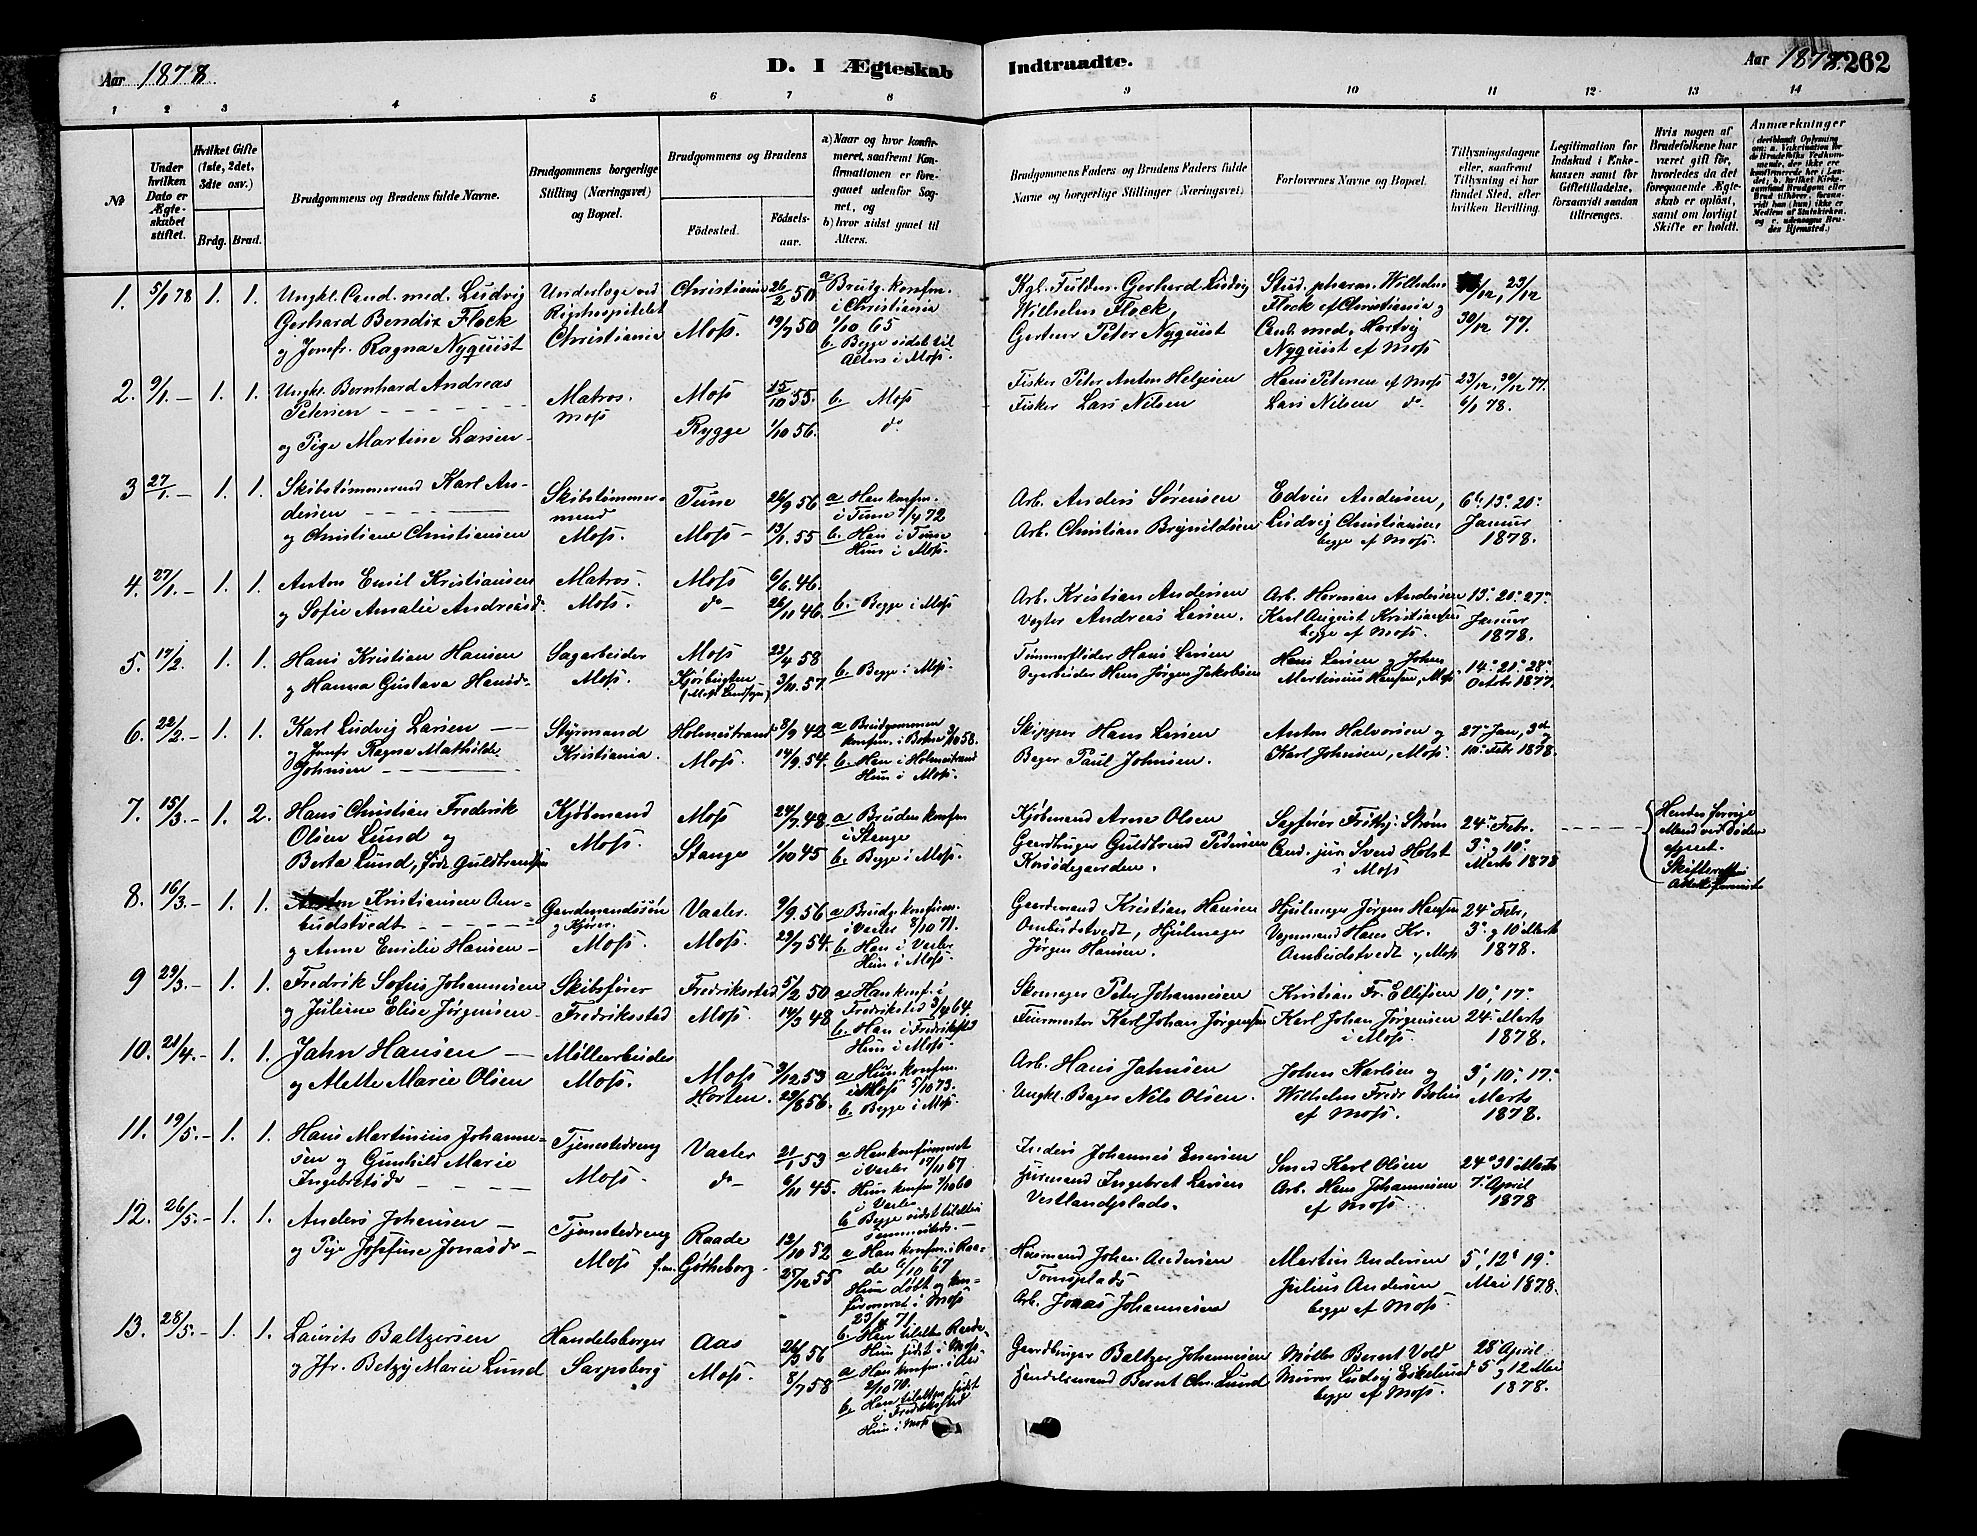 Aar 1878.
D. I Ægteskab
Indtraadte.
Aar 1878. 262
1 2 3 4 5 6 7 8 9 10 11 12 13 14
No
Under hvilken Dato er Ægteskabet stiftet.
Hvilket Gifte (1ste, 2det, 3dte osv.)
Brdg. Brud.
Brudgommens og Brudens fulde Navne.
Brudgommens borgerlige Stilling (Næringsvei) og Bopæl.
Brudgommens og Brudens
Fødested.
Fødselsaar.
a) Naar og hvor konfirmeret, saafremt Konfirmationen er foregaaet udenfor Sognet, og
b) hvor sidst gaaet til Alters.
Brudgommens Faders og Brudens Faders fulde Navne og borgerlige Stillinger (Næringsvei)
Forlovernes Navne og Bopæl.
Tillysningsdagene eller, saafremt Tillysning ei har fundet Sted, efter hvilken Bevilling.
Legitimation for Indskud i Enkekassen samt for Giftetilladelse, forsaavidt saadan tiltrænges.
Hvis nogen af Brudefolkene har været gift før, hvorledes da det foregaaende Ægteskab er opløst, samt om lovligt Skifte er holdt.
Anmærkninger
1. 5/1 78 1. 1. Ungkl. Cand. med. Ludvig
Gerhard Bendix Flock
og Jomfr. Ragna Nyquist
Underlæge ved
Rigshospitalet
Christiania
Christiania 26/2 50
Moss. 19/7 50
a Brudg. konfm.
i Christiania
1/10 65
b. Begge sidst til
Alters i Moss.
Kgl. Fuldm. Gerhard Ludvig
Wilhelm Flock,
Gartner Peter Nyquist
Stud. pharm. Wilhelm
Flock af Christiania og
Cand. med. Hartvig
Nyquist af Moss
/12, 23/12
30/12 77.
2. 9/1 - 1. 1. Ungkl. Bernhard Andreas
Petersen
og Pige Martine Larsen
Matros.
Moss
Moss 15/10 55.
Rygge 1/10 56.
b. Moss
do
Fisker Peter Anton Helgesen
Fisker Lars Nilsen
Hans Petersen af Moss
Lars Nilsen do
23/12, 30/12 77.
6/1 78.
3 27/1. - 1. 1. Skibstømmermd Karl An-
dersen
og Christiane Christiansen
Skibstømmer-
mand
Moss.
Tune 26/9 56
Moss - 13/1. 55
a Han konfm.
i Tune /4 72
b. Han i Tune
Hun i Moss.
Arb. Anders Sørensen
Arb. Christian Brynildsen
Edvin Andersen,
Ludvig Christiansen
begge af Moss.
6te 13. 20.
Januar
1878.
4. 27/1. - 1. 1. Anton Emil Kristiansen
og Sofie Amalie Andreasd.
Matros.
Moss.
Moss 6/6. 46.
do - 26/11 46.
b. Begge i Moss
Arb. Kristian Andersen
Vægter Andreas Larsen.
Arb. Herman Andersen
Karl August Kristiansen
begge af Moss.
13. 20. 27.
Januar
1878.
5. 17/2. 1. 1. Hans Kristian Hansen
og Hanna Gustava Hansd.
Sagarbeider
Moss.
Moss 23/4 58
3/10. 57.
b. Begge i Moss.
Tømmerfløder Hans Larsen
Sagarbeider Hans Jørgen Jakobsen
Hans Larsen og Johan
Martinius Hansen, Moss
14. 21. 28.
Octobr 1877.
6. 22/2. - 1. 1. Karl Ludvig Larsen
og Jomfr Ragna Mathilde
Johnsen
Styrmand
Kristiania.
Holmestrand 8/9 42
Moss. 14/9. 54.
a Brudgommen
konfm. i Botne /10 58.
b. Han i Holmestrand
Hun i Moss.
Skipper Hans Larsen
Bager Paul Johnsen.
Anton Halvorsen og
Karl Johnsen, Moss.
27. Jan, 3d
10. Febr 1878.
7. 15/3. - 1. 2. Hans Christian Frederik
Olsen Lund og
Berta Lund, født Guldbrandsen
Kjøbmand
Moss.
Moss 24/7. 48.
Stange 1/10 45
a Bruden konfm
i Stange
b. Begge i Moss.
Kjøbmand Arne Olsen
Gaardbruger Guldbrand Pedersen
Korsødegaarden.
Sagfører Frithj. Strøm
Cand. jur. Svend Holst
i Moss
24. Febr.
3. og 10.
Marts 1878
Hendes forrige
Mand ved Døden
afgaaet.
8. 16/3. - 1. 1. Kristiansen Om-
budstvedt
og Anne Emilie Hansen
Gaardmandssøn
Moss.
Vaaler. 9/9. 56
Moss. 29/7 54.
a Brudg. konfirm.
i Vaaler 8/10 71.
b. Han i Vaaler
Hun i Moss.
Gaardmand Kristian Hansen
Ombudstvedt, Hjulmager
Jørgen Hansen.
Hjulmager Jørgen Hansen
Vognmand Hans Kr.
Ombudstvedt, Moss
24. Febr,
3. og 10 Marts
1878.
9 29/3. - 1. 1. Fredrik Sofus Johannesen
og Juliane Elise Jørgensen
Skibsfører
Fredriksstad
Fredriksstad 5/2 50
Moss. 14/3 48
a Han konf. i
Fredriksstad 3/4 64.
b. Han i Fredriksstad
Hun i Moss.
Skomager Peter Johannesen
Karl Johan Jørgensen
Kristian Fr. Ellefsen
Karl Johan Jørgensen
i Moss.
10. 17.
24. Marts
1878.
10. 21/4. - 1. 1. Jahn Hansen
og Alette Marie Olsen
Møllearbeider
Moss.
Moss 3/12 53
Horten. 29/8 56.
a Hun konfm.
i Moss 5/10 73.
b. Begge i Moss.
Arb. Hans Jahnsen
Ungkl. Bager Nils Olsen.
Johan Karlsen og
Wilhelm Fredr Bolius
af Moss.
3. 10. 17.
Marts
1878.
11. 19/5. - 1. 1. Hans Martinius Johanne-
sen og Gunhild Marie
Ingebretsdr
Tjenestedreng
Moss.
Vaaler 21/1 53
do - 6/11 45.
a Han konfirmeret
i Vaaler 17/11 67.
Hun konfm /10 60
i Vaaler
b Begge sidst til Alters
sammesteds.
Johannes Enersen
Ingebret Larsen
Vestlandplads.
Smed Karl Olsen
Arb. Hans Johannesen
af Moss.
24. 31. Marts
7. April
1878
12. 26/5. - 1. 1. Anders Johansen
og Pige Josefine Jonasdr
Tjenestedreng
Moss
Raade 12/10 52
Gøtheborg. 25/12 55
a Han konfm. i Raa-
de 6/10 67
Hun døbt og kon-
firmeret i Moss
23/4 71.
b. Han til Alters Raade.
Hun sidst i Moss
Husmand Johan Andersen
Tomtplads
Arb. Jonas Johannesen
Martin Andersen
Julius Andersen
begge af Moss.
5. 12. 19.
Mai 1878.
13. 28/5. - 1. 1. Laurits Baltzersen
og Jfr. Betzy Marie Lund
Handelsborger
Sarpsborg
Aas 26/3 56
Moss. 8/7 58
a Han konfm. i Aas
2/10 70.
b. Han til Alters sidst
i Fredriksstad
Hun i Moss
Gaardbruger Baltzer Johannesen
Handelsmand Bernt Chr. Lund
Møller Bernt Vold
Murer Ludvig Eskelund
begge af Moss.
28 April
5 og 12 Mai
1878.